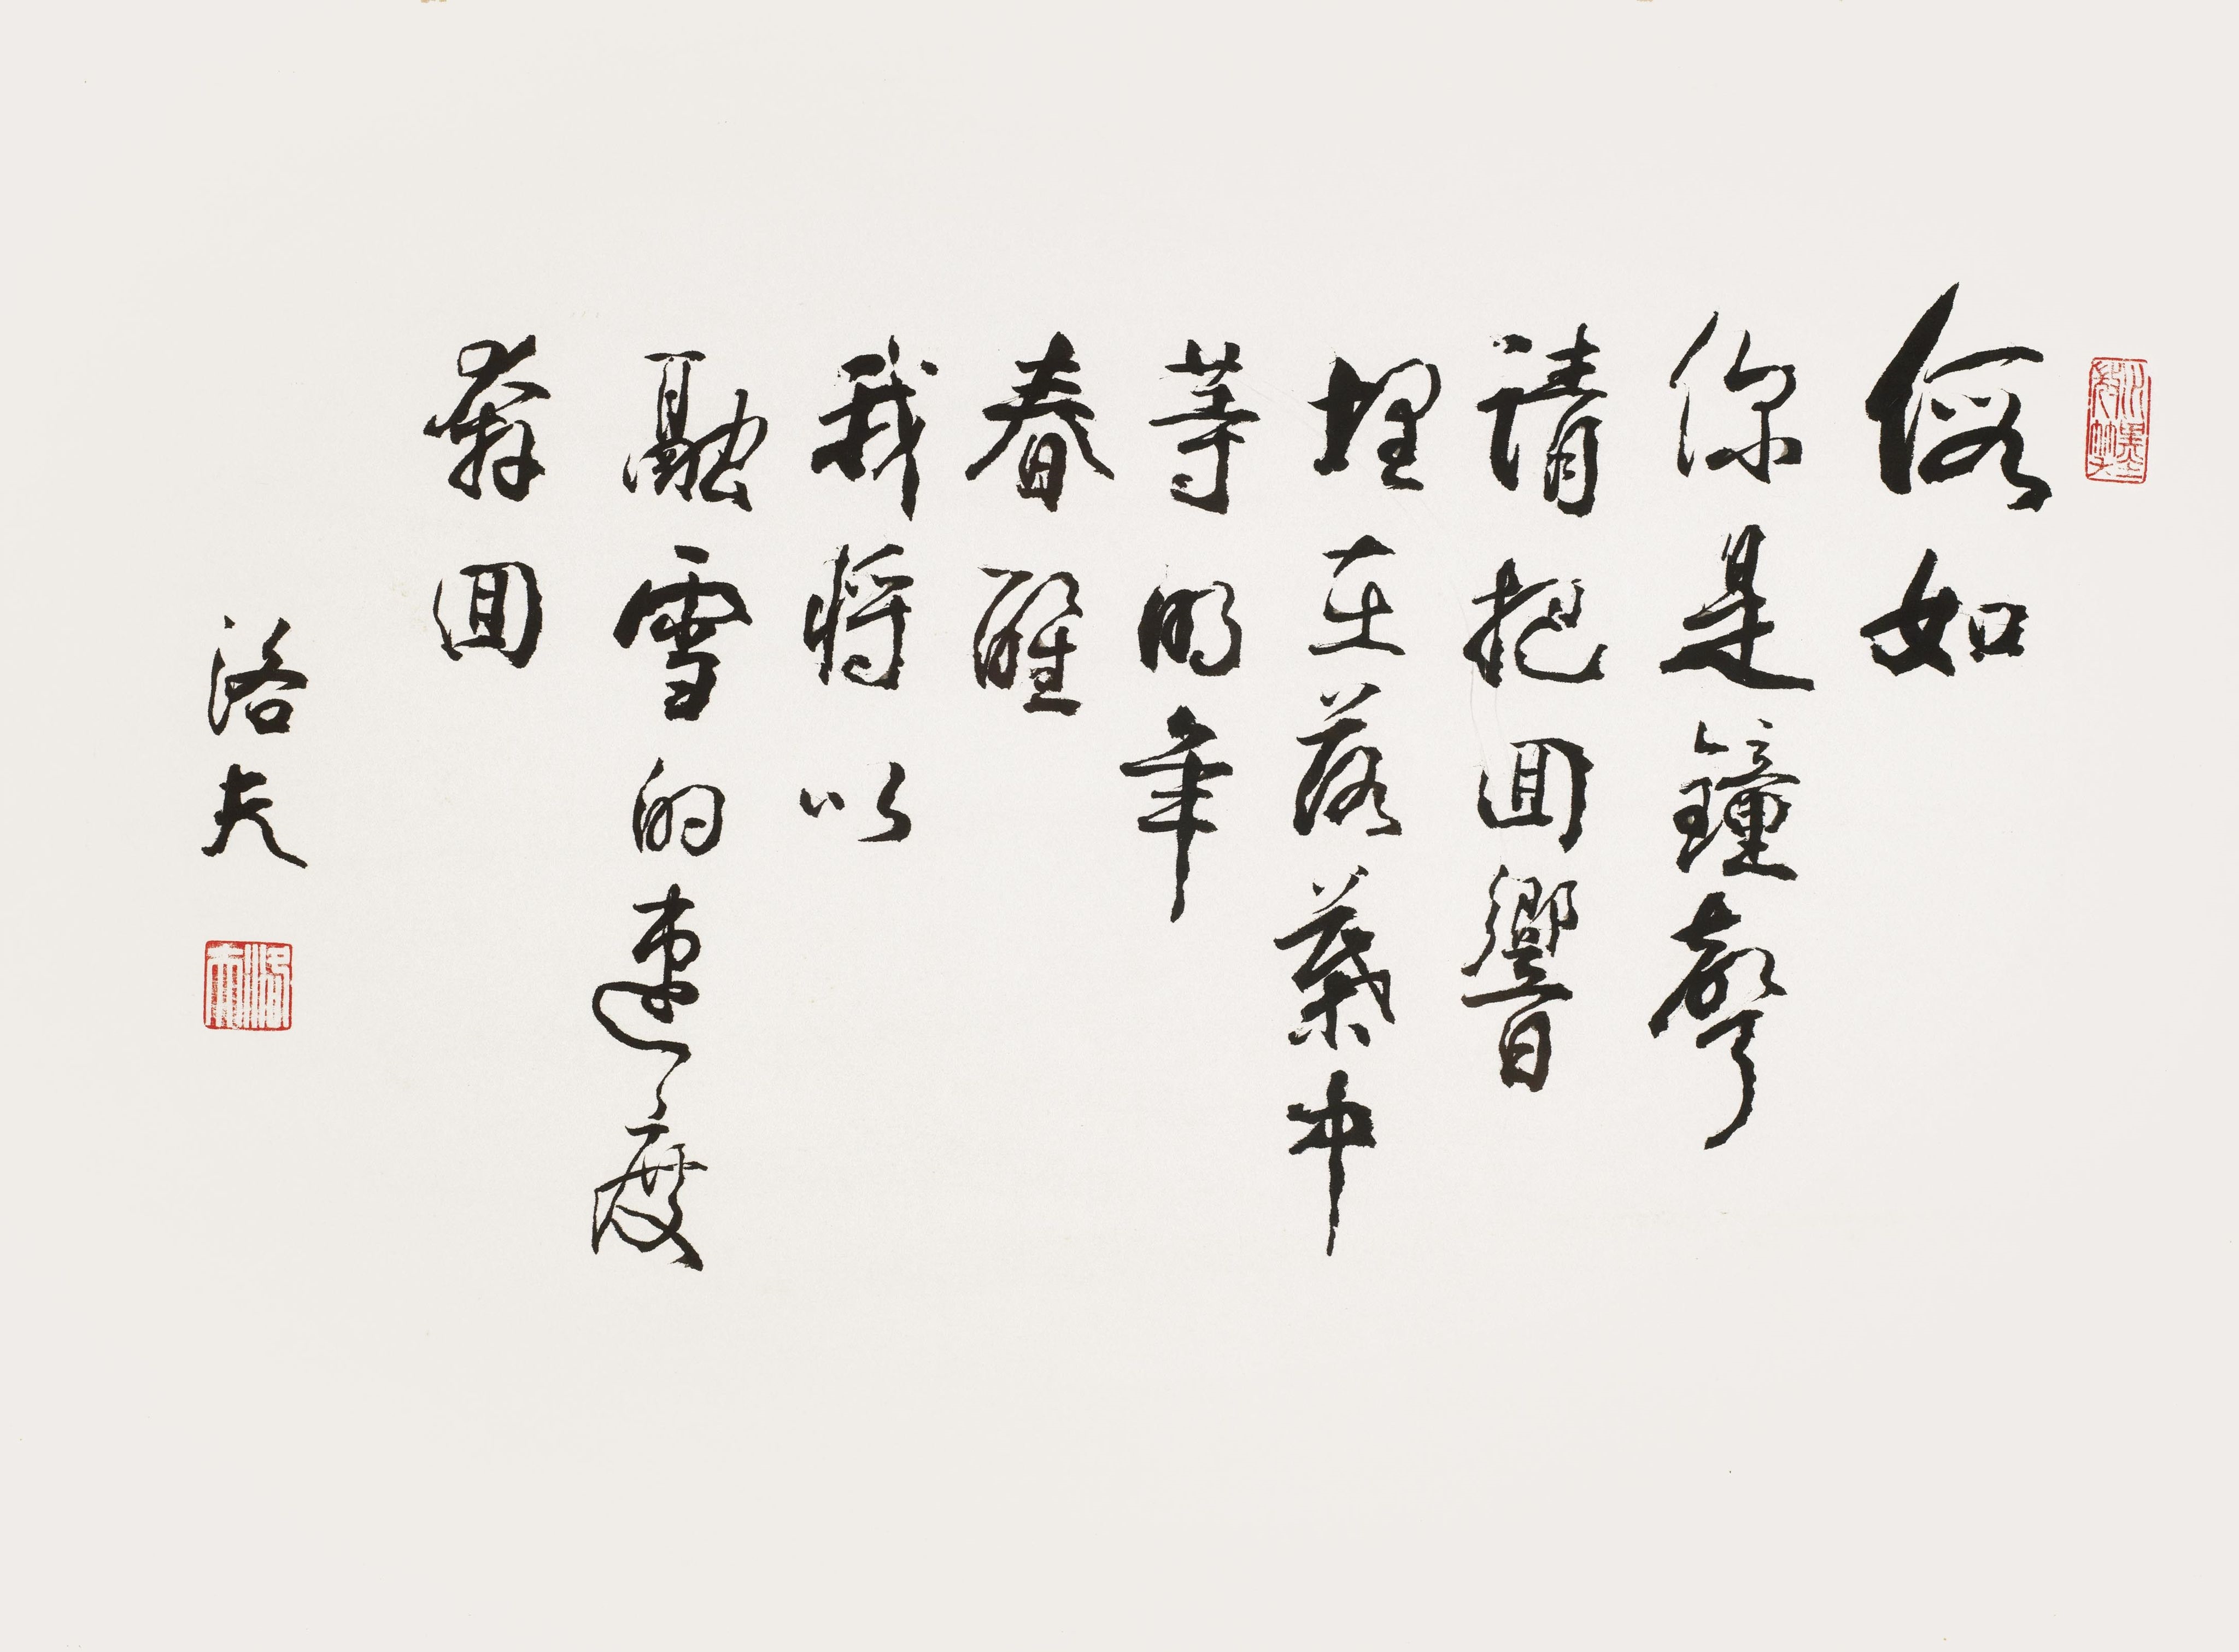 假如
你是鐘聲
請把回響
埋在落葉中
等明年
春醒
我將以
融雪的速度
奔回
洛夫
洛夫